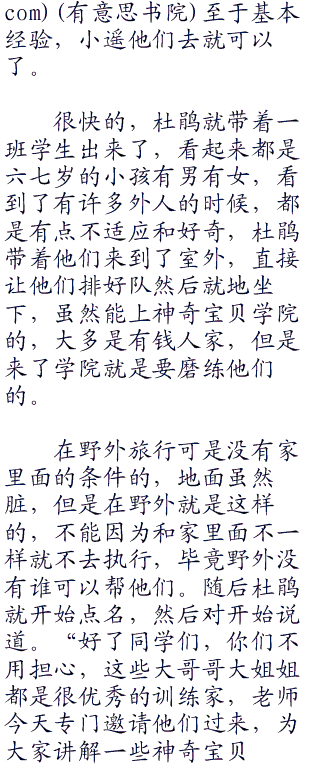 com)(有意思书院)至于基本
经验，小遥他们去就可以
了。
很快的，杜鹃就带着一
班学生出来了，看起来都是
六七岁的小孩有男有女，看
到了有许多外人的时候，都
是有点不适应和好奇，杜鹃
带着他们来到了室外，直接
让他们排好队然后就地坐
下，虽然能上神奇宝贝学院
的，大多是有钱人家，但是
来了学院就是要磨练他们
的。
在野外旅行可是没有家
里面的条件的，地面虽然
脏，但是在野外就是这样
的，不能因为和家里面不一
样就不去执行，毕竟野外没
有谁可以帮他们。随后杜鹃
就开始点名，然后对开始说
道。“好了同学们，你们不
用担心，这些大哥哥大姐姐
都是很优秀的训练家，老师
今天专门邀请他们过来，为
大家讲解一些神奇宝贝